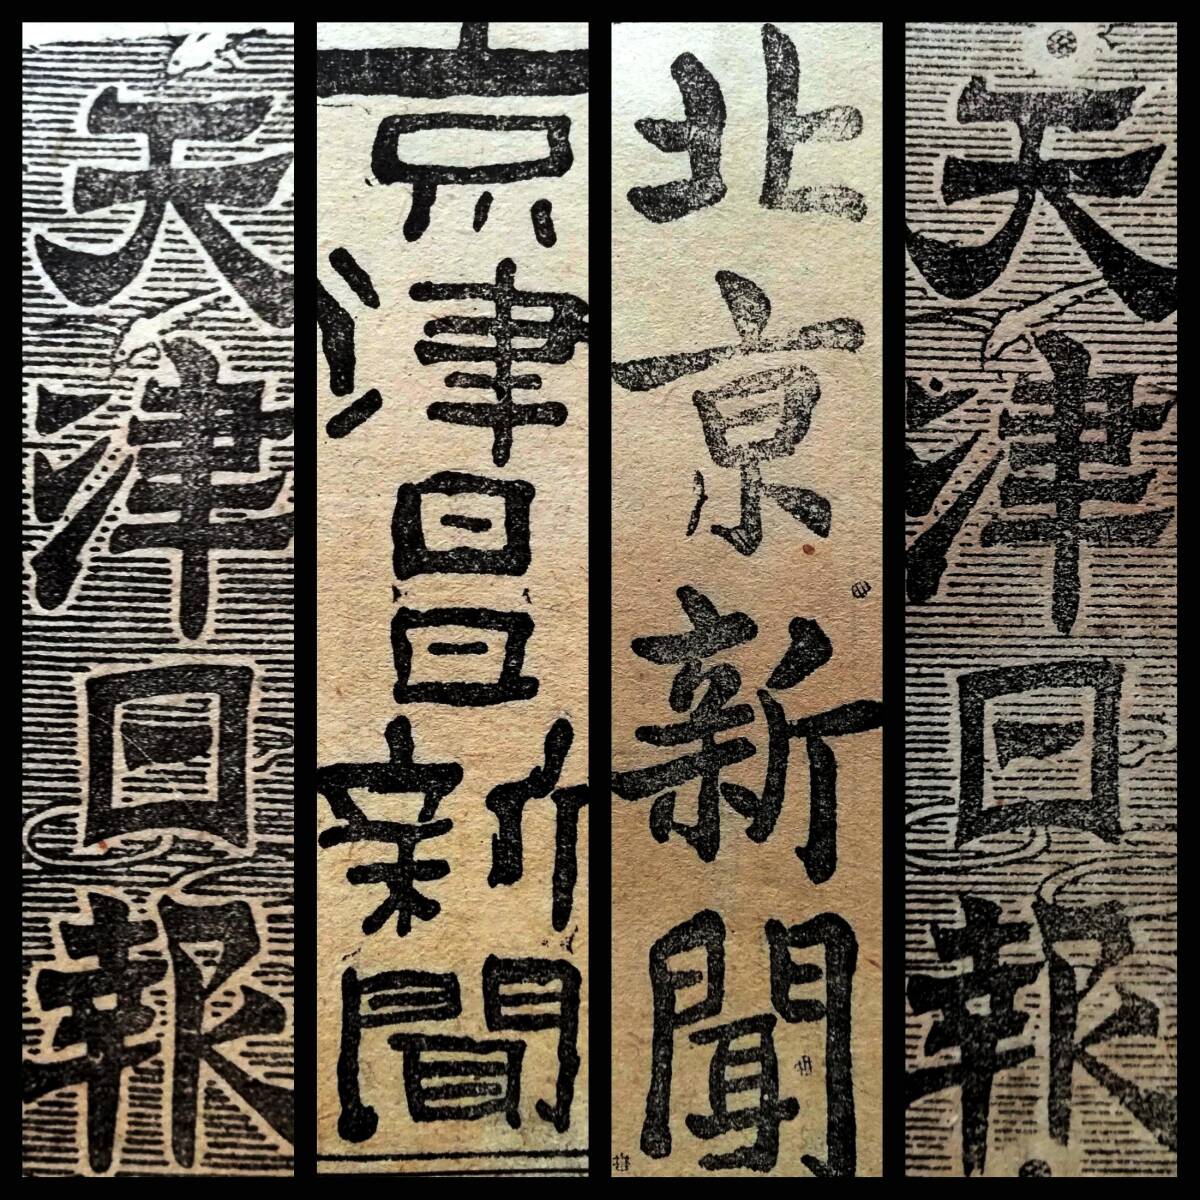 天津日報
京津日日新聞
北京新聞
天津日報